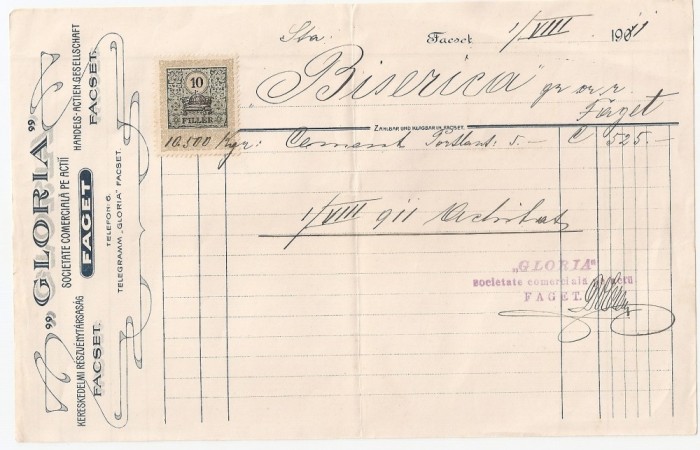 „GLORIA”
SOCIETATE COMERCIALĂ PE ACTII
KERESKEDELMI RÉSZVÉNYTÁRSASÁG
FACSET.
FAGET
HANDELS-ACTIEN-GESELLSCHAFT
FACSET.
TELEFON: 6.
TELEGRAMM „GLORIA” FACSET.
10
FILLER
Sta. Facset, 1/VIII 1911
„Biserica" gr. or. r.
Faget
ZAHLBAR UND KLAGBAR IN FACSET.
10.500 Kgr: Cement Portland: 5.— C 525.—
1/VIII 911 Achitat
„GLORIA"
societate comerciala pe actii
FAGET.